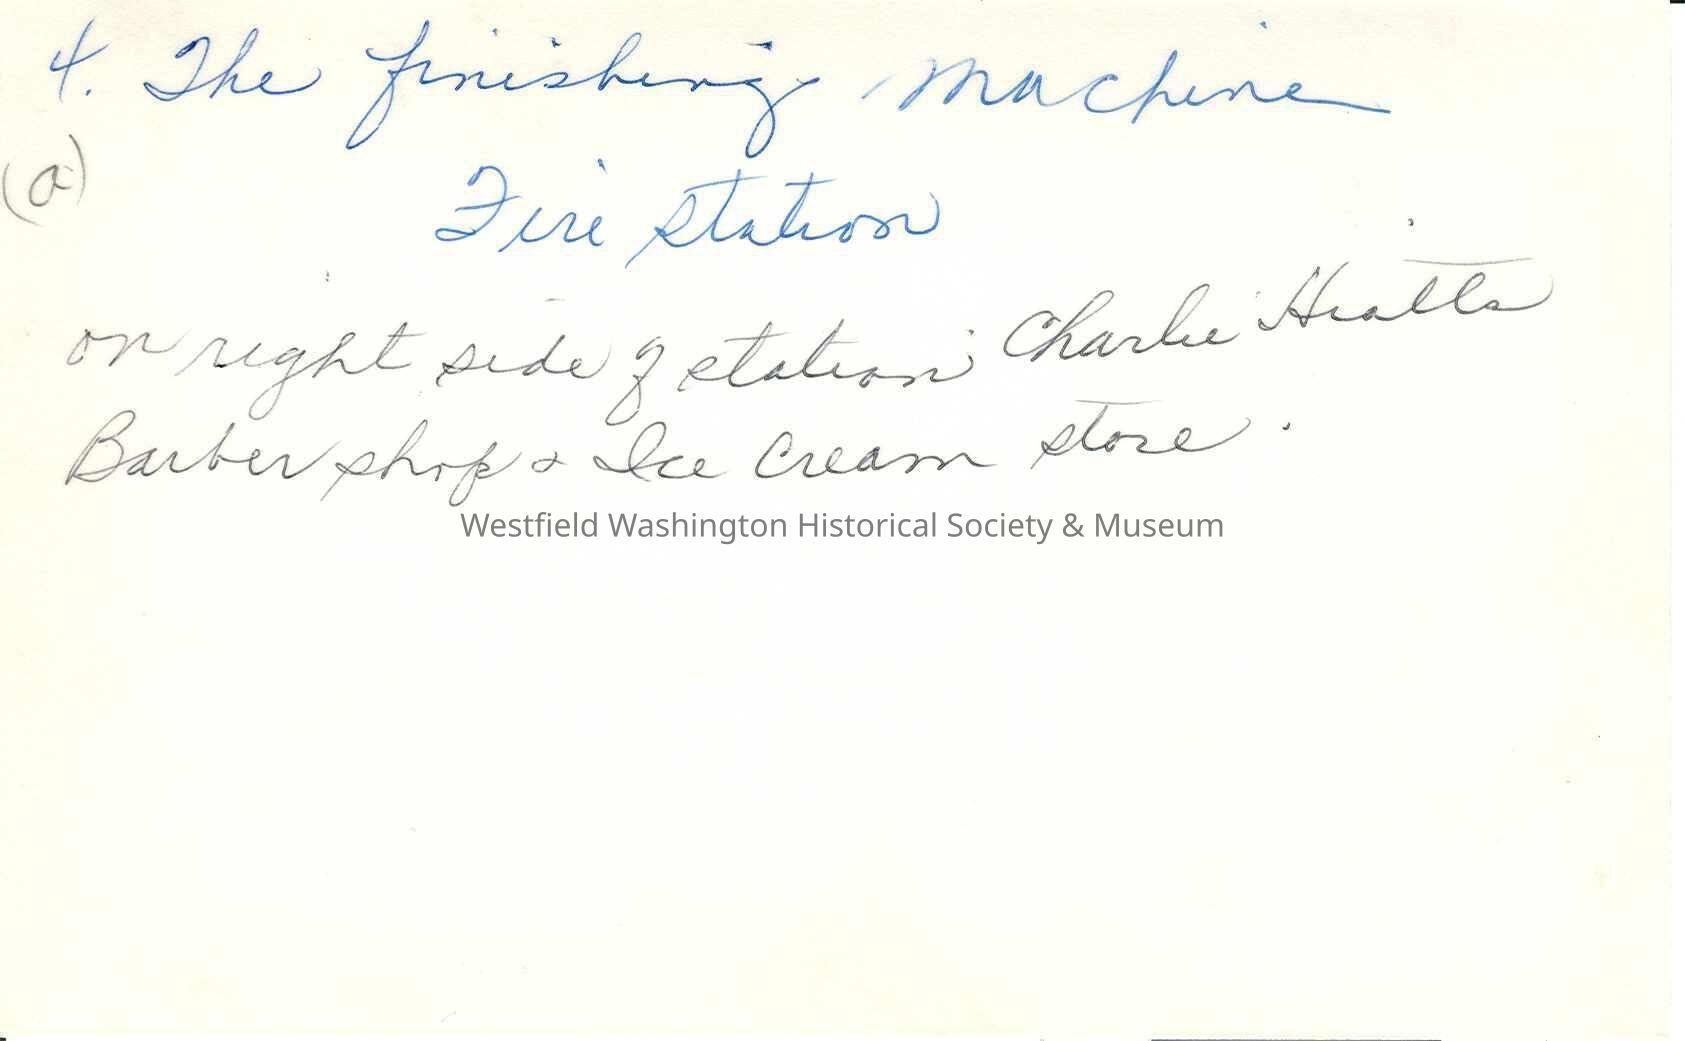 4. The finishing Machine
(a)
Fire station
on right side of station Charlie Hiatts
Barber shop & Ice Cream store.
Westfield Washington Historical Society & Museum